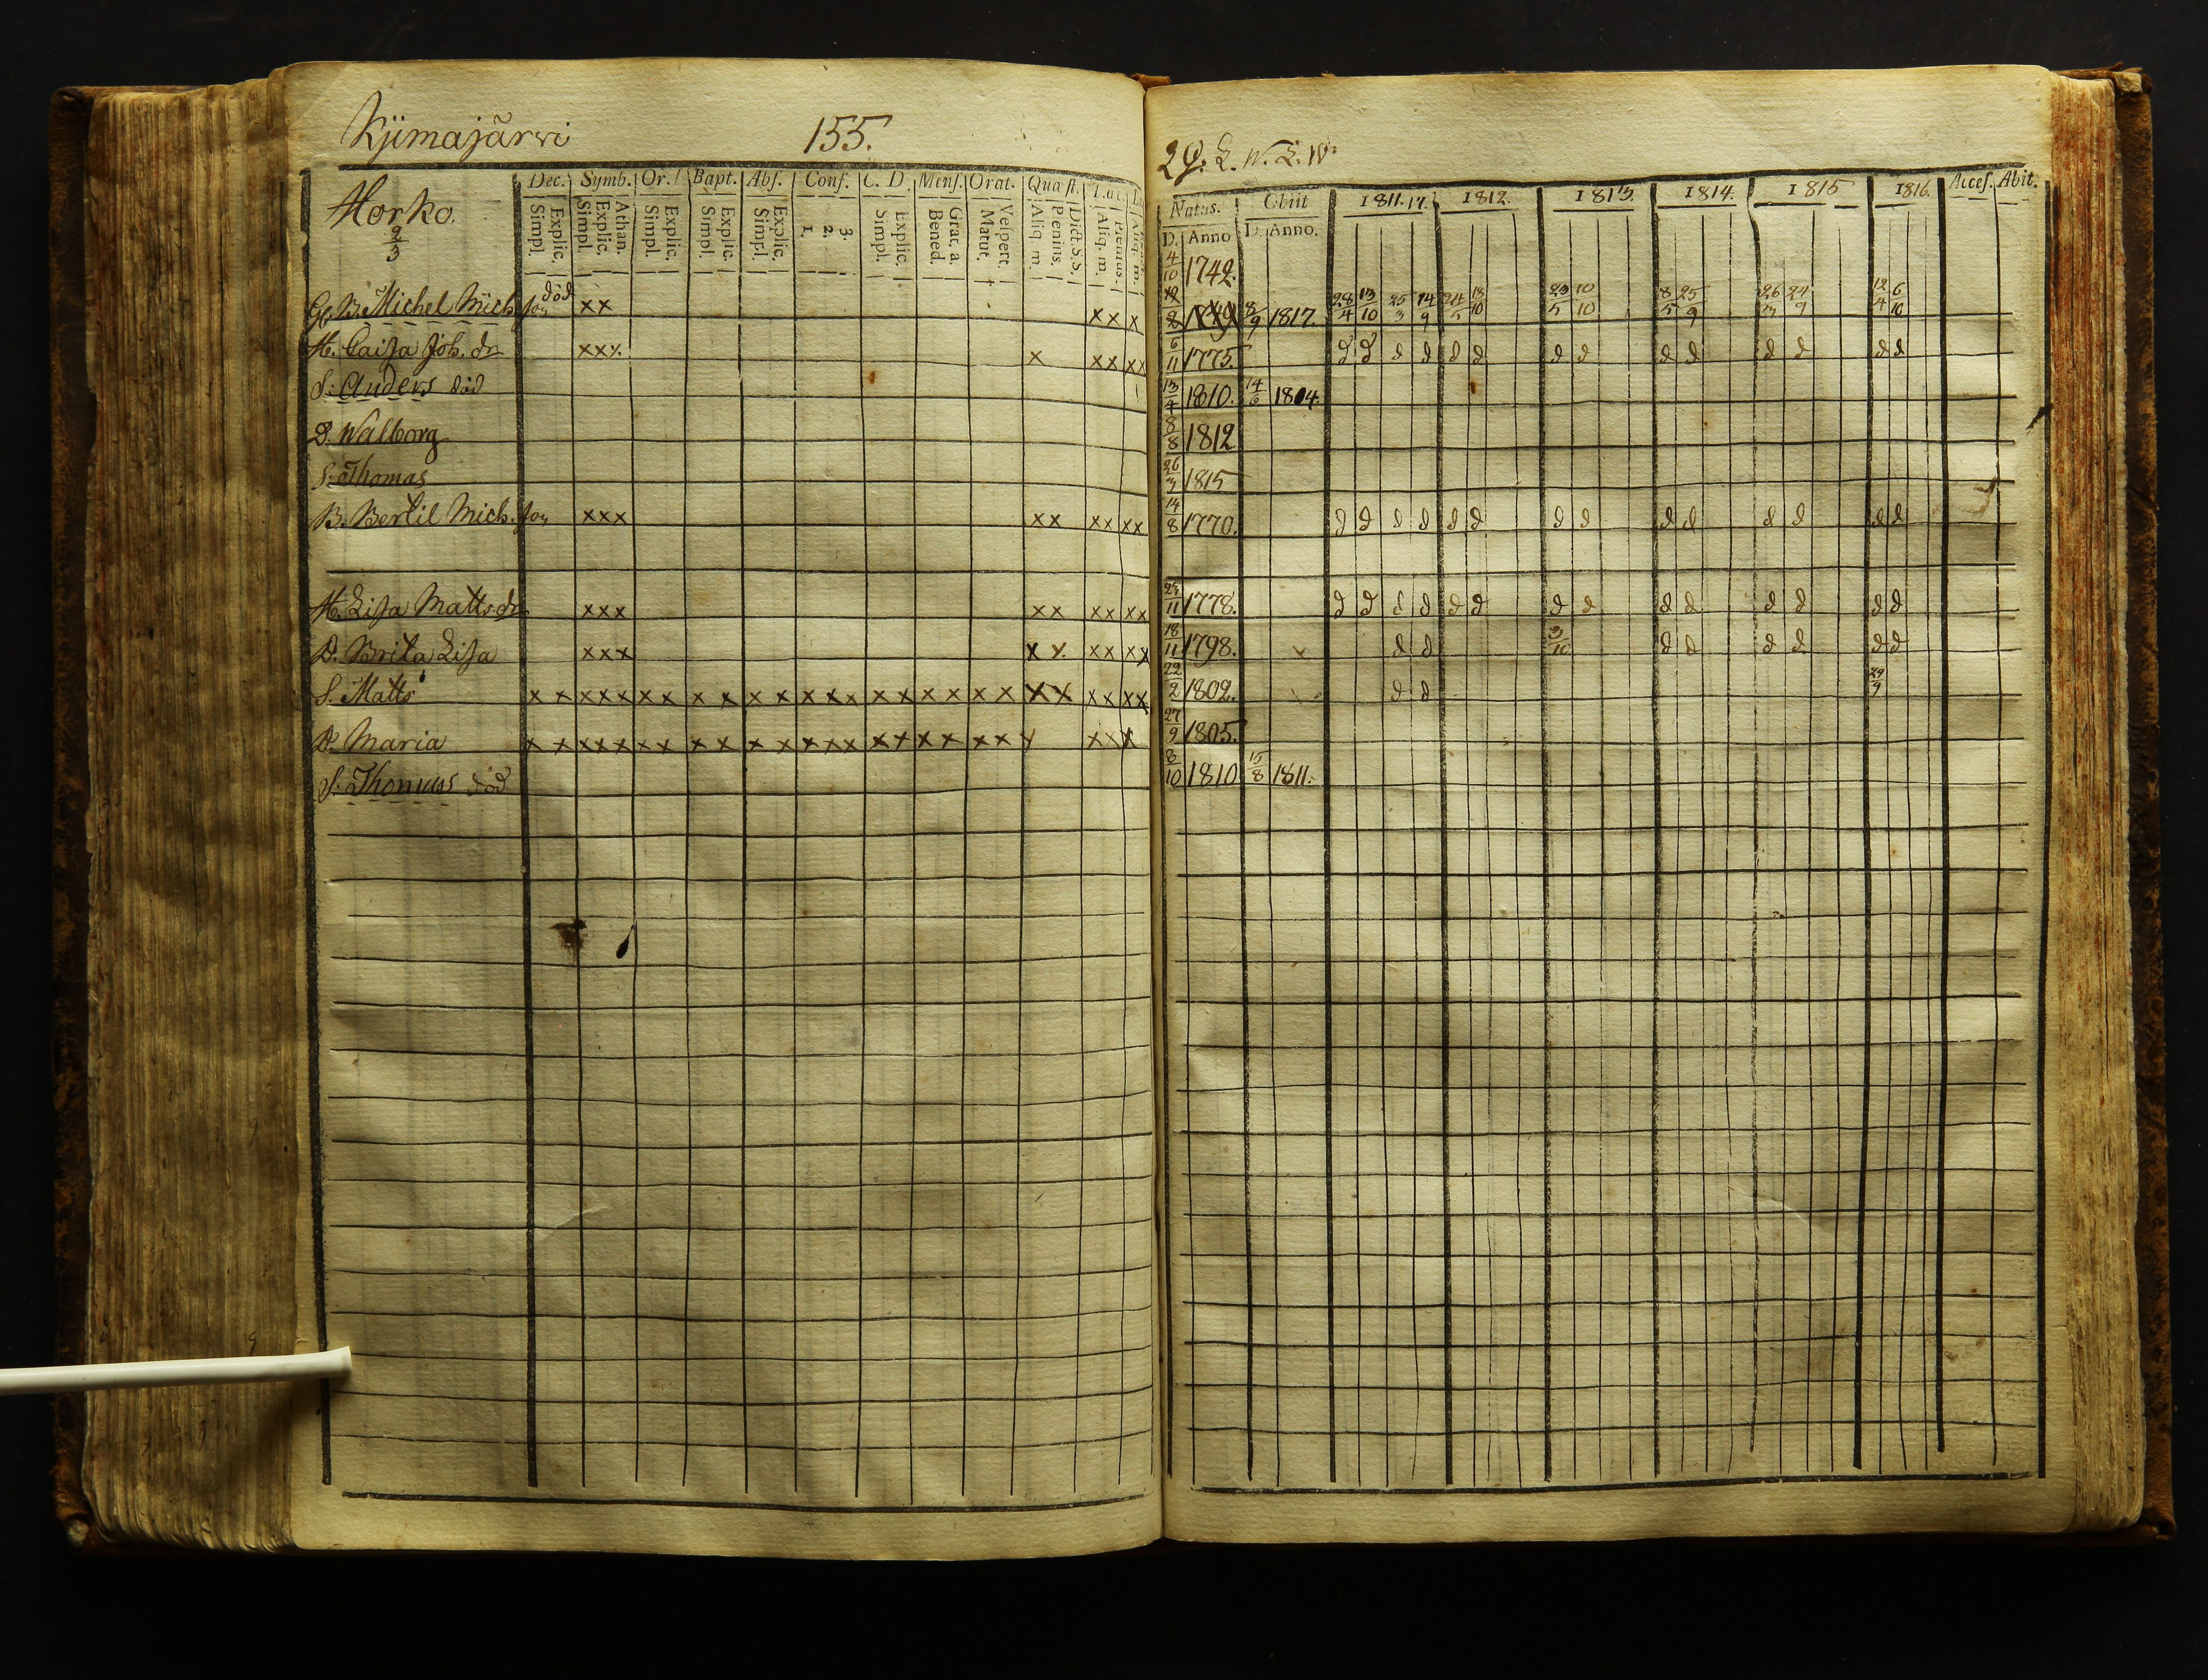 Kjimajärvi 155.
Horko.
2/3
Dec. Symb. Or. Bapt. Abs. Conf. C. D. Mens. Orat. Quæst.
Simpl. Explic. Simpl. Explic. Athan. Simpl. Explic. Simpl. Explic. Simpl. Explic. 1. 2. 3. Simpl. Explic. Bened. Grat. a. Matut. Vespert. Aliq. m. Penins. Dict. S.S. Aliq. m.
Michel Mich son död x x x x x
H. Caisa Joh. dr x x x x x x x x
S: Anders död
D. Walborg
S: Thomas
B. Bertil Mich. son x x x x x x x x x
H. Lisa Matts dr x x x x x x x x x
D. Brita Lisa x x x x x x x x x
S. Matts x x x x x x x x x x x x x x x x x x x x x x x x x x x x
D. Maria x x x x x x x x x x x x x x x x x x x x x x x x x x
S: Thomas död
Natus. Obiit 1811. 17. 1812. 1813. 1814. 1815 1816. Acces. Abit.
D. Anno D. Anno.
4/10 1742.
8/9 1817. 28/4 13/10 25/3 14/9 24/5 18/10 23/5 10/10 8/5 25/9 26/3 24/9 12/4 6/10
6/11 1775. d d d d d d d d d d d d d d
13/4 1810. 14/6 1814.
8/8 1812
26/3 1815
14/8 1770. d d d d d d d d d d d d d d
24/11 1778. d d d d d d d d d d d d d d
18/11 1798. d d 3/10 d d d d d d
22/2 1802. d d 29/9
27/9 1805.
8/10 1810 15/8 1811.